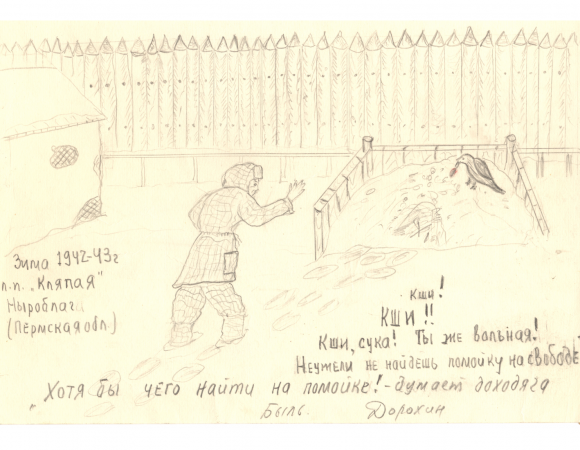 Зима 1942-43г
л.п. „Кляпая"
Ныроблага
(Пермская обл.)
Кши!
Кши!!
Кши, сука! Ты же вальная!
Неужели не найдешь помойку на свободе
„Хотя бы чего найти на помойке! - думает доходяга
Быль. Дорохин